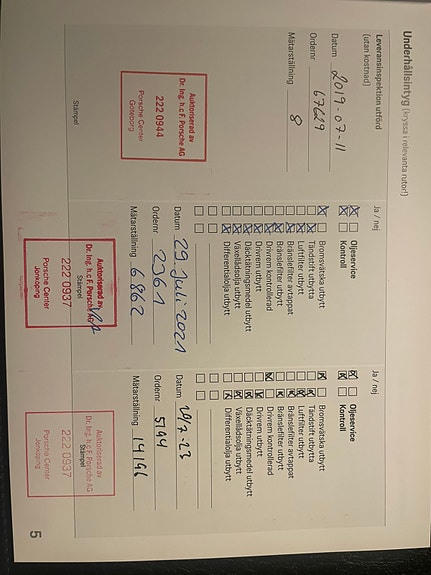 Underhållsintyg (kryssa i relevanta rutor!)
Leveransinspektion utförd
(utan kostnad)
Datum 2019-07-11
Ordernr 67629
Mätarställning 8
Auktoriserad av
Dr. Ing. h.c F. Porsche AG
222 0944
Porsche Center
Göteborg
Stämpel
Ja / nej
Oljeservice
Kontroll
Bromsvätska utbytt
Tändstift utbytta
Luftfilter utbytt
Bränslefilter avtappat
Bränslefilter utbytt
Drivrem kontrollerad
Drivrem utbytt
Däcktätningsmedel utbytt
Växellådsolja utbytt
Differentialolja utbytt
Datum 29 Juli 2021
Ordernr 2361
Mätarställning 6862
Auktoriserad av
Dr. Ing. h.c F. Porsche AG
Stämpel
222 0937
Porsche Center
Jönköping
Ja / nej
Oljeservice
Kontroll
Bromsvätska utbytt
Tändstift utbytta
Luftfilter utbytt
Bränslefilter avtappat
Bränslefilter utbytt
Drivrem kontrollerad
Drivrem utbytt
Däcktätningsmedel utbytt
Växellådsolja utbytt
Differentialolja utbytt
Datum
Ordernr 5194
Mätarställning 14196
Auktoriserad av
Dr. Ing. h.c F. Porsche AG
Stämpel
222 0937
Porsche Center
Jönköping
5